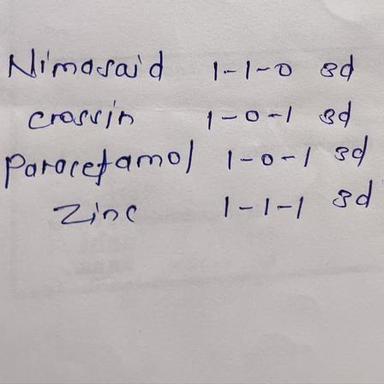 Nimosaid 1-1-0 3d
crossin 1-0-1 3d
Paracetamol 1-0-1 3d
Zinc 1-1-1 3d